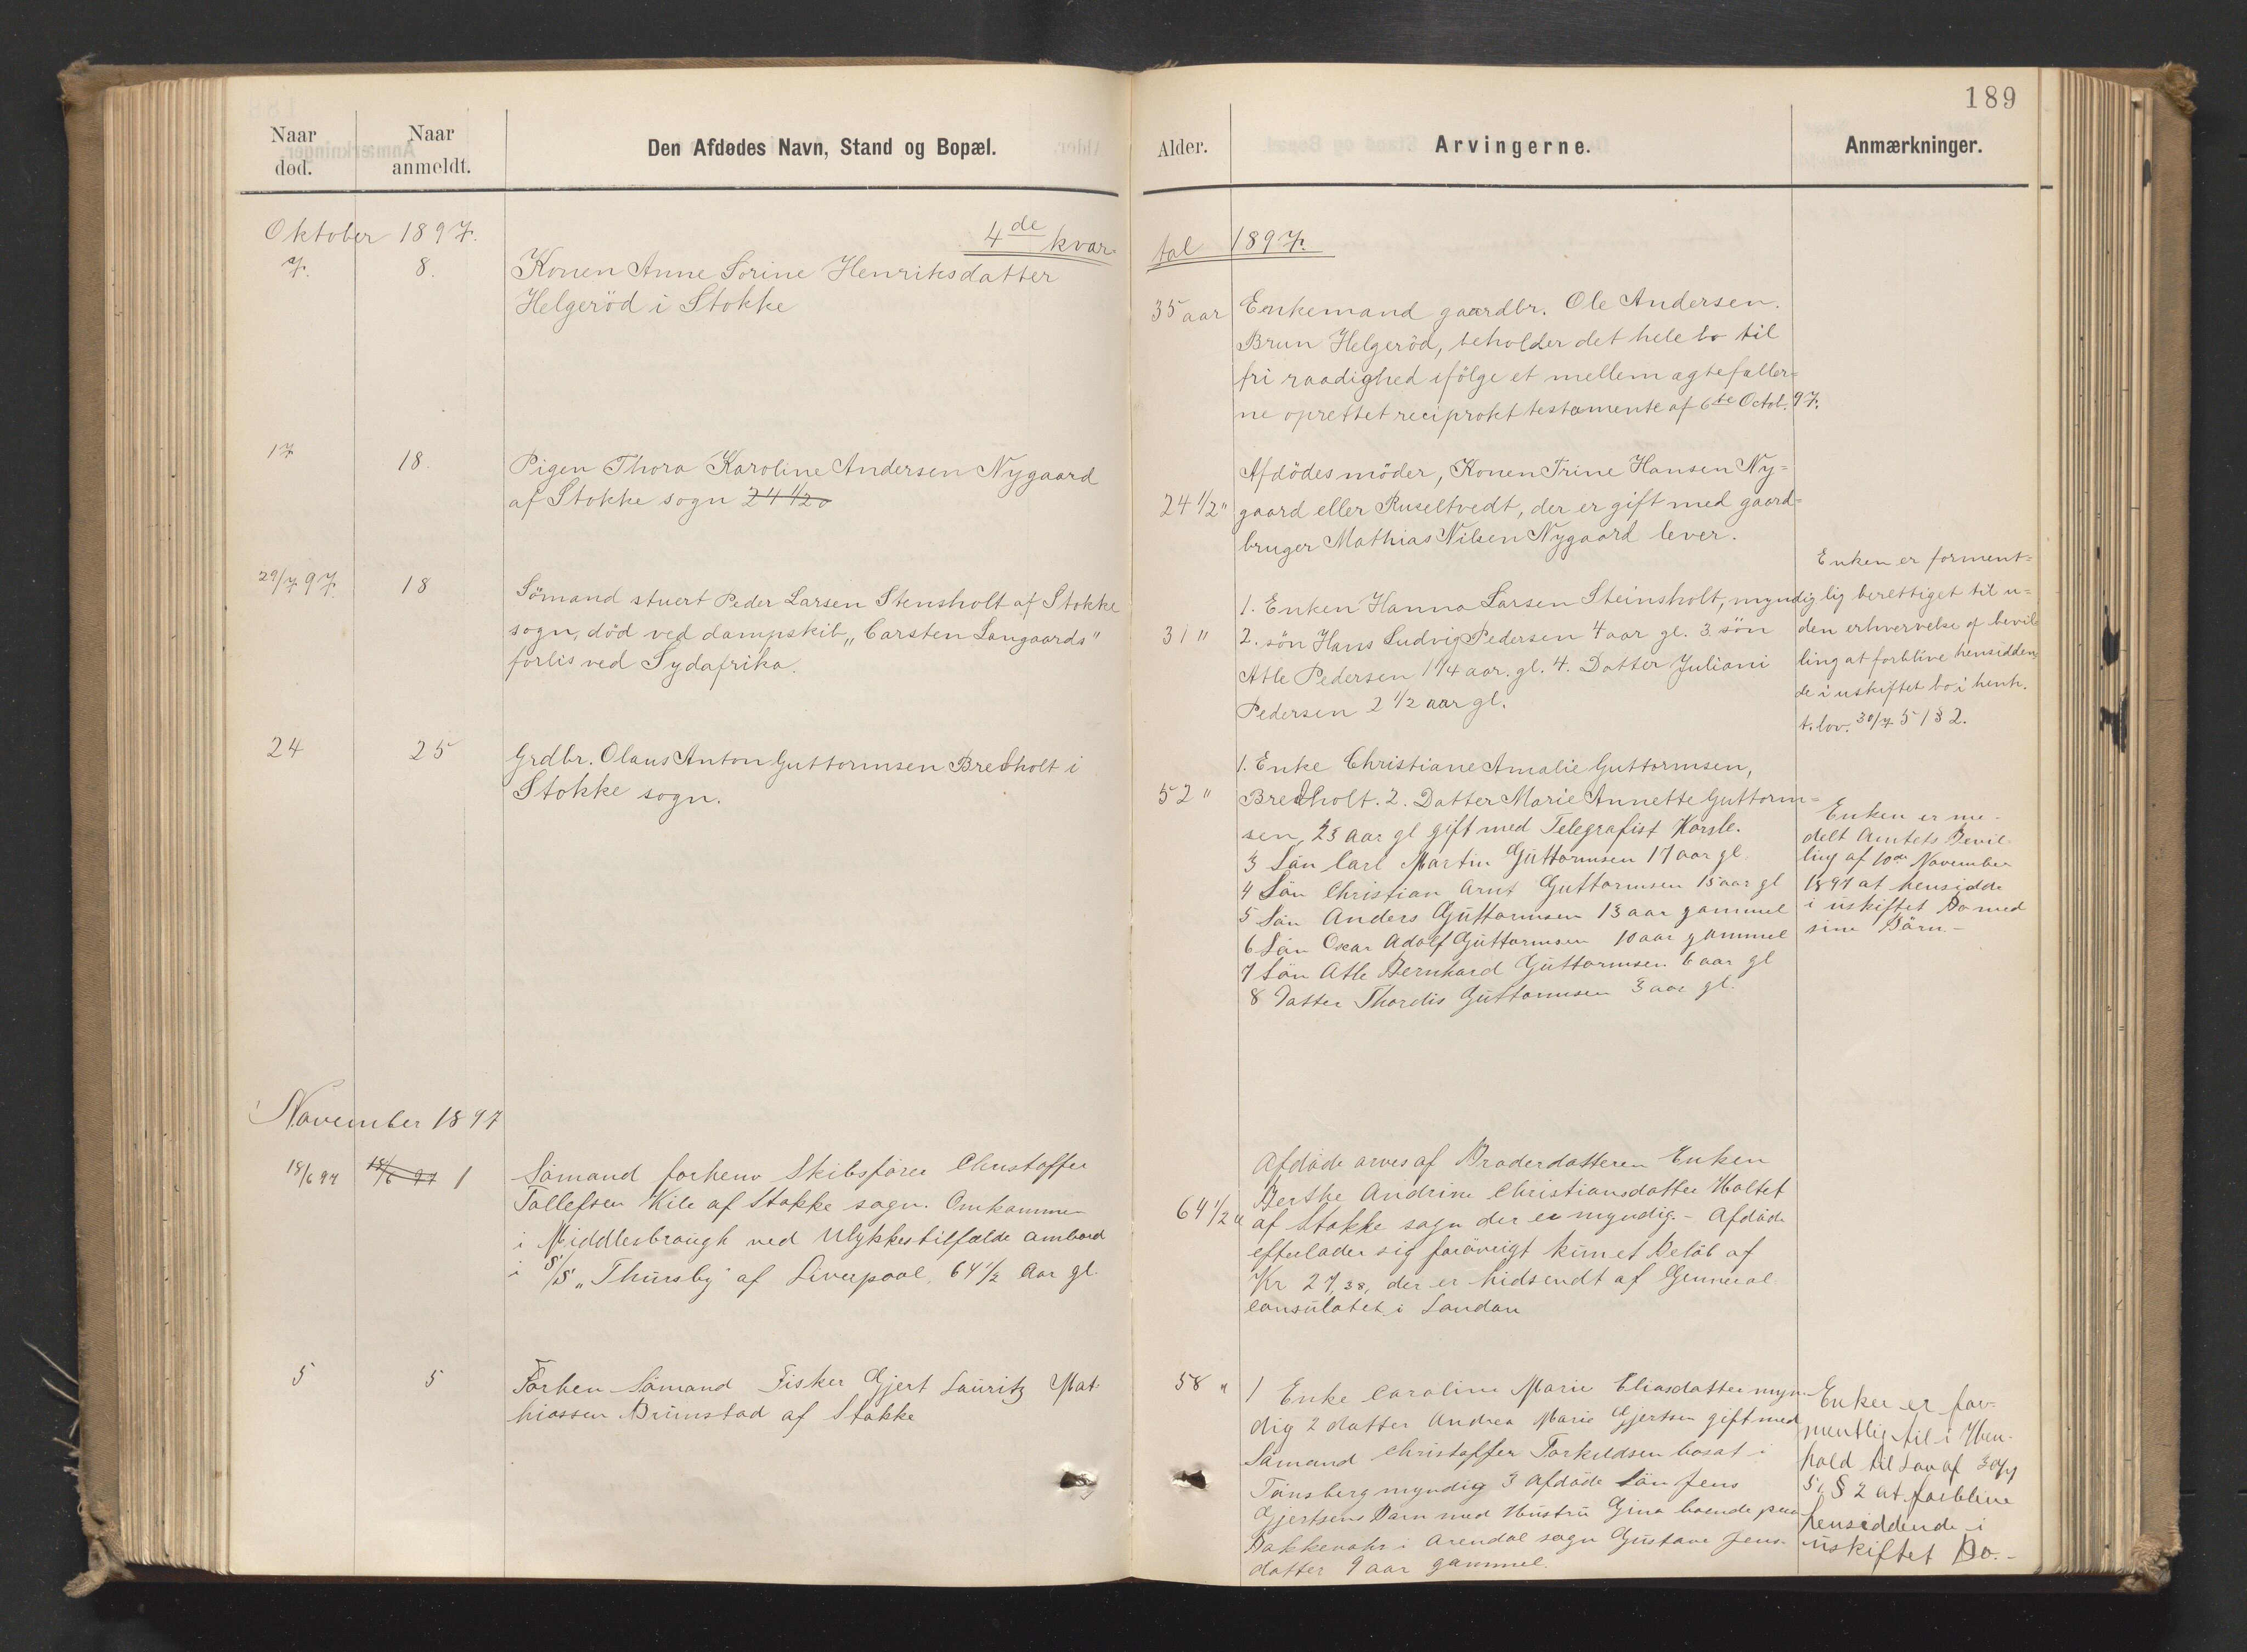 189
Naar død.
Naar anmeldt.
Den Afdødes Navn, Stand og Bopæl.
Alder.
Arvingerne.
Anmærkninger.
Oktober 1897.
4de kvar-
tal 1897.
7.
8.
Konen Anne Sorine Henriksdatter
Helgeröd i Stokke
35 aar
Enkemand gaardbr. Ole Andersen.
Brun Helgeröd, beholder det hele bo til
fri raadighed ifölge et mellem ægtefæller=
ne oprettet reciprokt testamente af 6te Octob. 97.
17
18.
Pigen Thora Karoline Andersen Nygaard
af Stokke sogn 24 1/2
24 1/2 "
Afdödes möder, Konen Trine Hansen Ny=
gaard eller Ruseltvedt, der er gift med gaard=
bruger Mathias Nilsen Nygaard lever.
29/7 97.
18
Sömand stuert Peder Larsen Stensholt af Stokke
sogn, död ved dampskib "Carsten Langaards"
forlis ved Sydafrika.
31 "
1. Enken Hanna Larsen Steinsholt, myndig
2. sön Hans Ludvig Pedersen 4 aar gl. 3. sön
Atle Pedersen 1 1/4 aar. gl. 4. Datter Juliani
Pedersen 2 1/2 aar gl.
Enken er forment=
lig berettiget til u=
den erhvervelse af bevil
ling at forblive hensidden
de i uskiftet bo i henh.
t. lov. 30/7 51 § 2.
24
25
Grdbr. Olaus Anton Guttormsen Bredholt i
Stokke sogn.
52 "
1. Enke Christiane Amalie Guttormsen,
Bredholt. 2. Datter Marie Annette Guttorm=
sen, 23 aar gl gift med Telegrafist
3 Sön Carl Martin Guttormsen 17 aar gl.
4 Sön Christian Arnt Guttormsen 15 aar gl
5 Sön Anders Guttormsen 13 aar gammel
6 Sön Oscar Adolf Guttormsen 10 aar gammel
7 Sön Atle Bernhard Guttormsen 6 aar gl
8 Datter Thordis Guttormsen 3 aar gl.
Enken er me-
delt Amtets Bevil-
ling af 10de November
1897 at hensidde
i uskiftet Bo med
sine Börn.-
November 1897
18/6 97
18/6 97 1
Sömand forhenv Skibsförer Christoffer
Tollefsen Kile af Stokke sogn. Omkommen
i Middlesbrough ved Ulykkestilfælde ombord
i S/S "Thursby" af Liverpool, 64 1/2 Aar gl
64 1/2 "
Afdöde arves af Broderdatteren Enken
Berthe Andrine Christiansdatter Holtet
af Stokke sogn der er myndig. - Afdöde
efterlader sig forövrigt kun et Belöb af
Kr 27,38, der er hidsendt af General
consulatet i London
5
5
Forhen Sömand Fisker Gjert Lauritz Mat-
hiassen Brunstad af Stokke
58 "
1 Enke Caroline Marie Eliasdatter myn-
dig 2 datter Andrea Marie Gjertsen gift med
Sömand Christoffer Torkildsen bosat i
Tönsberg myndig 3 Afdöde Sön Jens
Gjertsens Barn med Hustru Gina boende paa
i Arendal sogn Gustave Jens-
datter 9 aar gammel.
Enken er for-
mentlig til i Hen-
hold til Lov af 30/7
51 § 2 at forblive
hensiddende i
uskiftet Bo.-